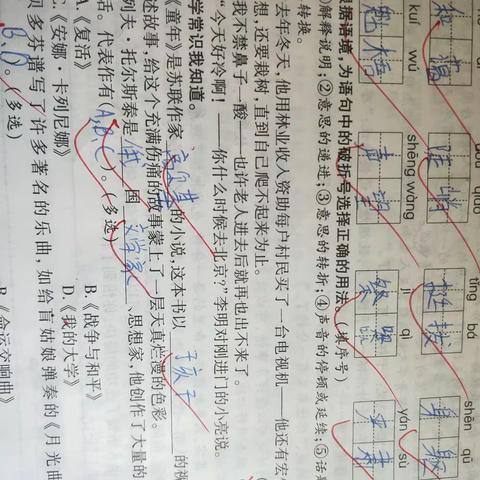 dǒu qiào tǐng bá shēn qū
和蔼 陡峭 挺拔 身躯
kuí wú shēng wàng jì qì yán sù
魁梧 声望 严肃
根据语境,为语句中的破折号选择正确的用法。(填序号)
解释说明;②意思的递进;③意思的转折;④声音的停顿或延续;⑤话
转换。
去年冬天,他用林业收入资助每户村民买了一台电视机——他还有宏
想,还要栽树,直到自己爬不起来为止。
我不禁鼻子一酸——也许老人进去后就再也出不来了。
“今天好冷啊!——你什么时候去北京?”李明对刚进门的小亮说。
学常识我知道。
《童年》是苏联作家 高尔基 的小说,这本书以 小孩子 的视
述故事,给这个充满伤痛的故事蒙上了一层天真烂漫的色彩。
列夫·托尔斯泰是 俄 国 文学家 、思想家,他创作了大量的
活。代表作有(A,B,C)。(多选)
A.《复活》 B.《战争与和平》
C.《安娜·卡列尼娜》 D.《我的大学》
贝多芬谱写了许多著名的乐曲,如给盲姑娘弹奏的《月光曲
B、D。(多选)
B.《命运交响曲》